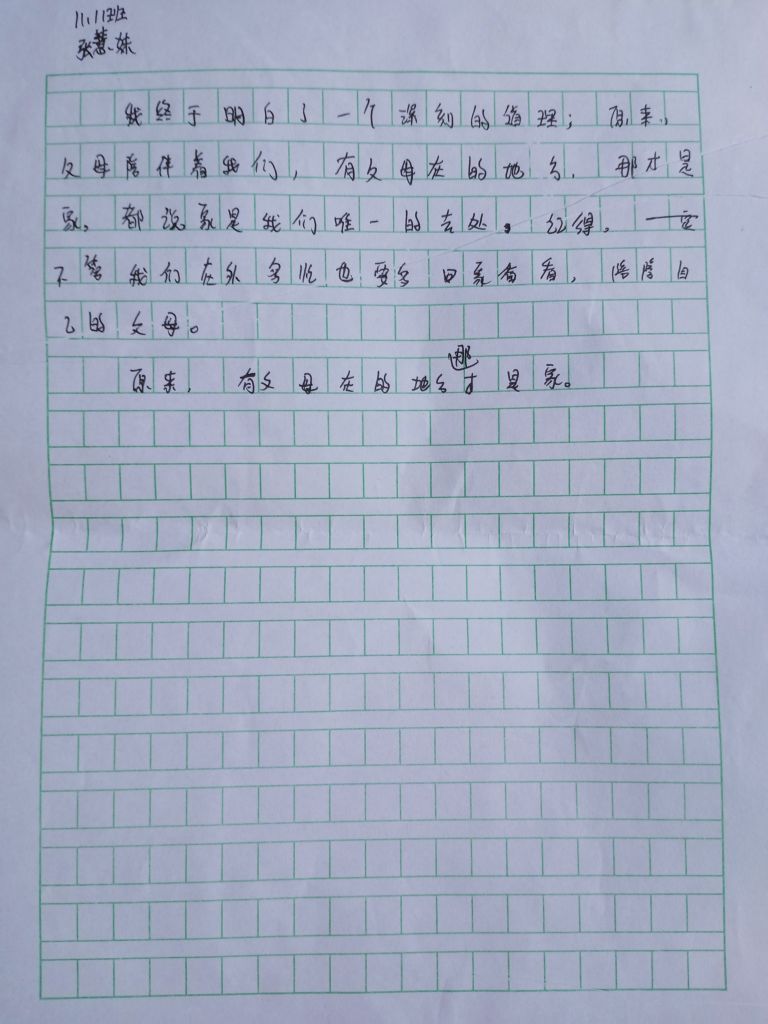 11.11班
张慧妹
我终于明白了一个深刻的道理；原来，
父母陪伴着我们，有父母在的地方，那才是
家。都说家是我们唯一的去处。记得，一定
不管我们在外多忙也要多回家看看，陪陪自
己的父母。
原来，有父母在的地方那才是家。